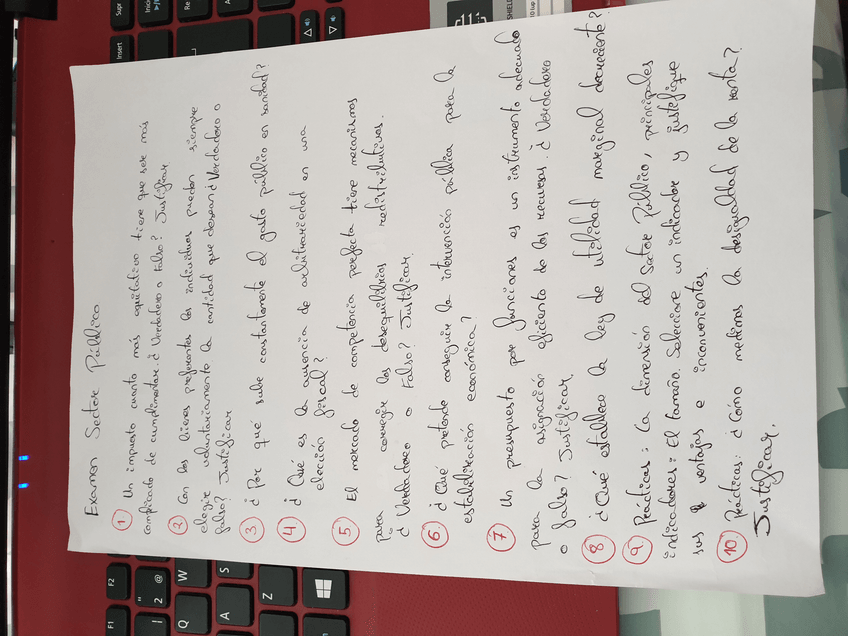 Examen Sector Público
1 Un impuesto cuanto mas equitativo tiene que ser más
complicado de cumplimentar. ¿Verdadero o Falso? Justificar
2 Con los bienes preferentes los individuos pueden siempre
elegir voluntariamente la cantidad que desean ¿Verdadero o
falso? Justificar
3 ¿Por qué sube constantemente el gasto público en sanidad?
4 ¿Qué es la ausencia de arbitrariedad en una
elección fiscal?
5 El mercado de competencia perfecta tiene mecanismos
para corregir los desequilibrios redistributivos.
¿Verdadero o Falso? Justificar.
6. ¿Qué pretende conseguir la intervención pública para la
estabilización económica?
7 Un presupuesto por funciones es un instrumento adecuado
para la asignación eficiente de los recursos. ¿Verdadero
o falso? Justificar.
8 ¿Qué establece la ley de utilidad marginal decreciente?
9 Prácticas: La dimensión del Sector Público, principales
indicadores: El tamaño. Seleccione un indicador y justifique
sus ventajas e inconvenientes.
10. Prácticas: ¿Cómo medimos la desigualdad de la renta?
Justificar.
F1
F2
Q
W
A
S
Z
2
@
Insert
Supr
Inicio